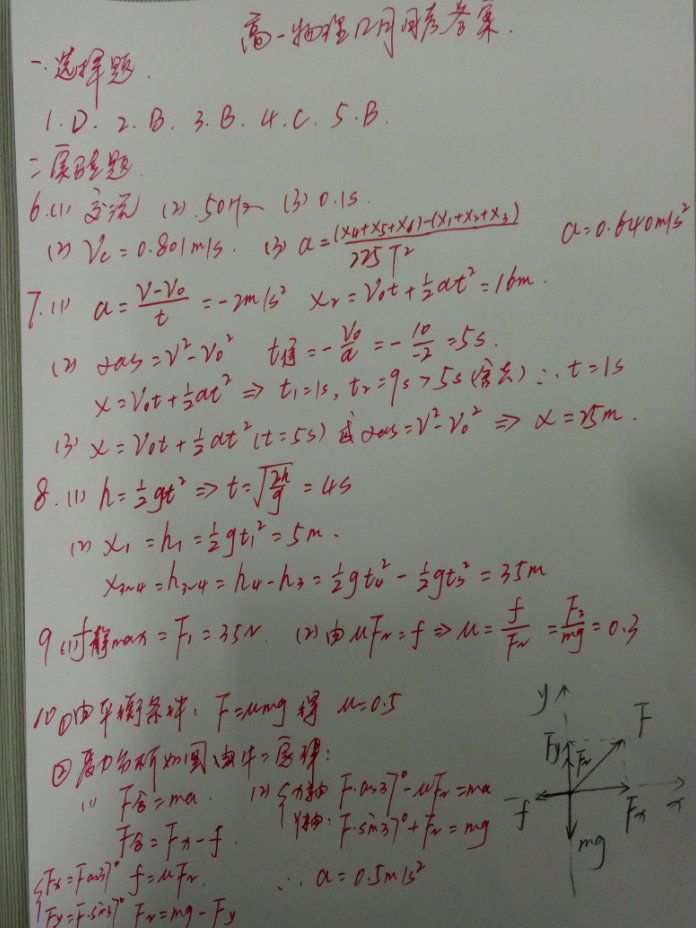 高一物理12月月考答案.
一.选择题.
1.D. 2.B. 3.B. 4.C. 5.B.
二.实验题.
6.(1) 交流 (2).50Hz (3) 0.1s.
(2) Vc=0.801m/s. (3) a=((x4+x5+x6)-(x1+x2+x3))/(225T²) a=0.640m/s²
7.(1) a=(V-V0)/t=-2m/s² x2=V0t+½at²=16m.
(2) 2as=V²-V0² t停=-V0/a=-10/-2=5s.
x=V0t+½at² ⇒ t1=1s, t2=9s>5s(舍去) ∴t=1s
(3) x=V0t+½at²(t=5s) 或 2as=V²-V0² ⇒ x=25m.
8.(1) h=½gt² ⇒ t=√(2h/g)=4s
(2) x1=h1=½gt1²=5m.
x3~4=h3~4=h4-h3=½gt4²-½gt3²=35m
9.(1) f静max=F1=35N. (2) 由μFN=f ⇒ μ=f/FN=F2/mg=0.3
10 ①由平衡条件: F=μmg 得 μ=0.5
②受力分析如图,由牛二定律:
(1) F合=ma. (2) {x轴 F·cos37°-μFN=ma
y轴: F·sin37°+FN=mg
F合=Fx-f.
{Fx=Fcos37° f=μFN. ∴a=0.5m/s²
Fy=F·sin37° FN=mg-Fy
y
F
Fy
FN
f
Fx
x
mg